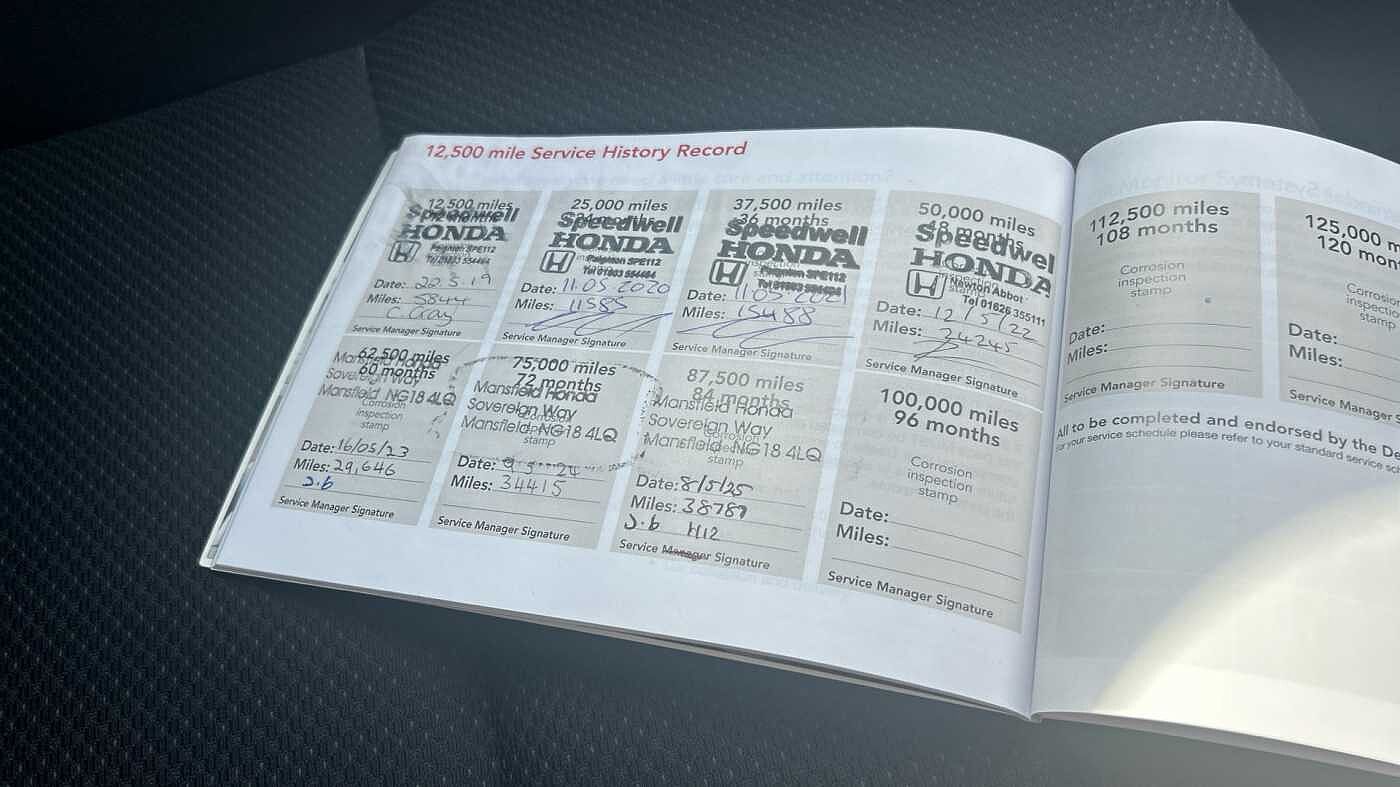 12,500 mile Service History Record
12,500 miles
Speedwell
HONDA
Paignton SPE112
Tel 01803 554484
Date: 22.5.19
Miles: 5844
C. Gay
Service Manager Signature
25,000 miles
24 months
Speedwell
HONDA
Paignton SPE112
Tel 01803 554484
Date: 11.05 2020
Miles: 11585
Service Manager Signature
37,500 miles
36 months
Speedwell
HONDA
Paignton SPE112
Tel 01803 554484
Date: 11.05 2021
Miles: 15488
Service Manager Signature
50,000 miles
48 months
Speedwell
HONDA
Newton Abbot
Tel 01626 355111
Date: 12/5/22
Miles: 24245
Service Manager Signature
62,500 miles
60 months
Mansfield Honda
Sovereign Way
Mansfield NG18 4LQ
Corrosion
inspection
stamp
Date: 16/05/23
Miles: 29,646
J.b
Service Manager Signature
75,000 miles
72 months
Mansfield Honda
Sovereign Way
Mansfield, NG18 4LQ
stamp
Date: 9 5 24
Miles: 34415
Service Manager Signature
87,500 miles
84 months
Mansfield Honda
Sovereign Way
Mansfield, NG18 4LQ
stamp
Date: 8/5/25
Miles: 38787
J.b H12
Service Manager Signature
100,000 miles
96 months
Corrosion
inspection
stamp
Date:
Miles:
Service Manager Signature
112,500 miles
108 months
Corrosion
inspection
stamp
Date:
Miles:
Service Manager Signature
125,000 m
120 mon
Corros
inspec
stam
Date:
Miles:
Service Manager
All to be completed and endorsed by the De
For your service schedule please refer to your standard service sc